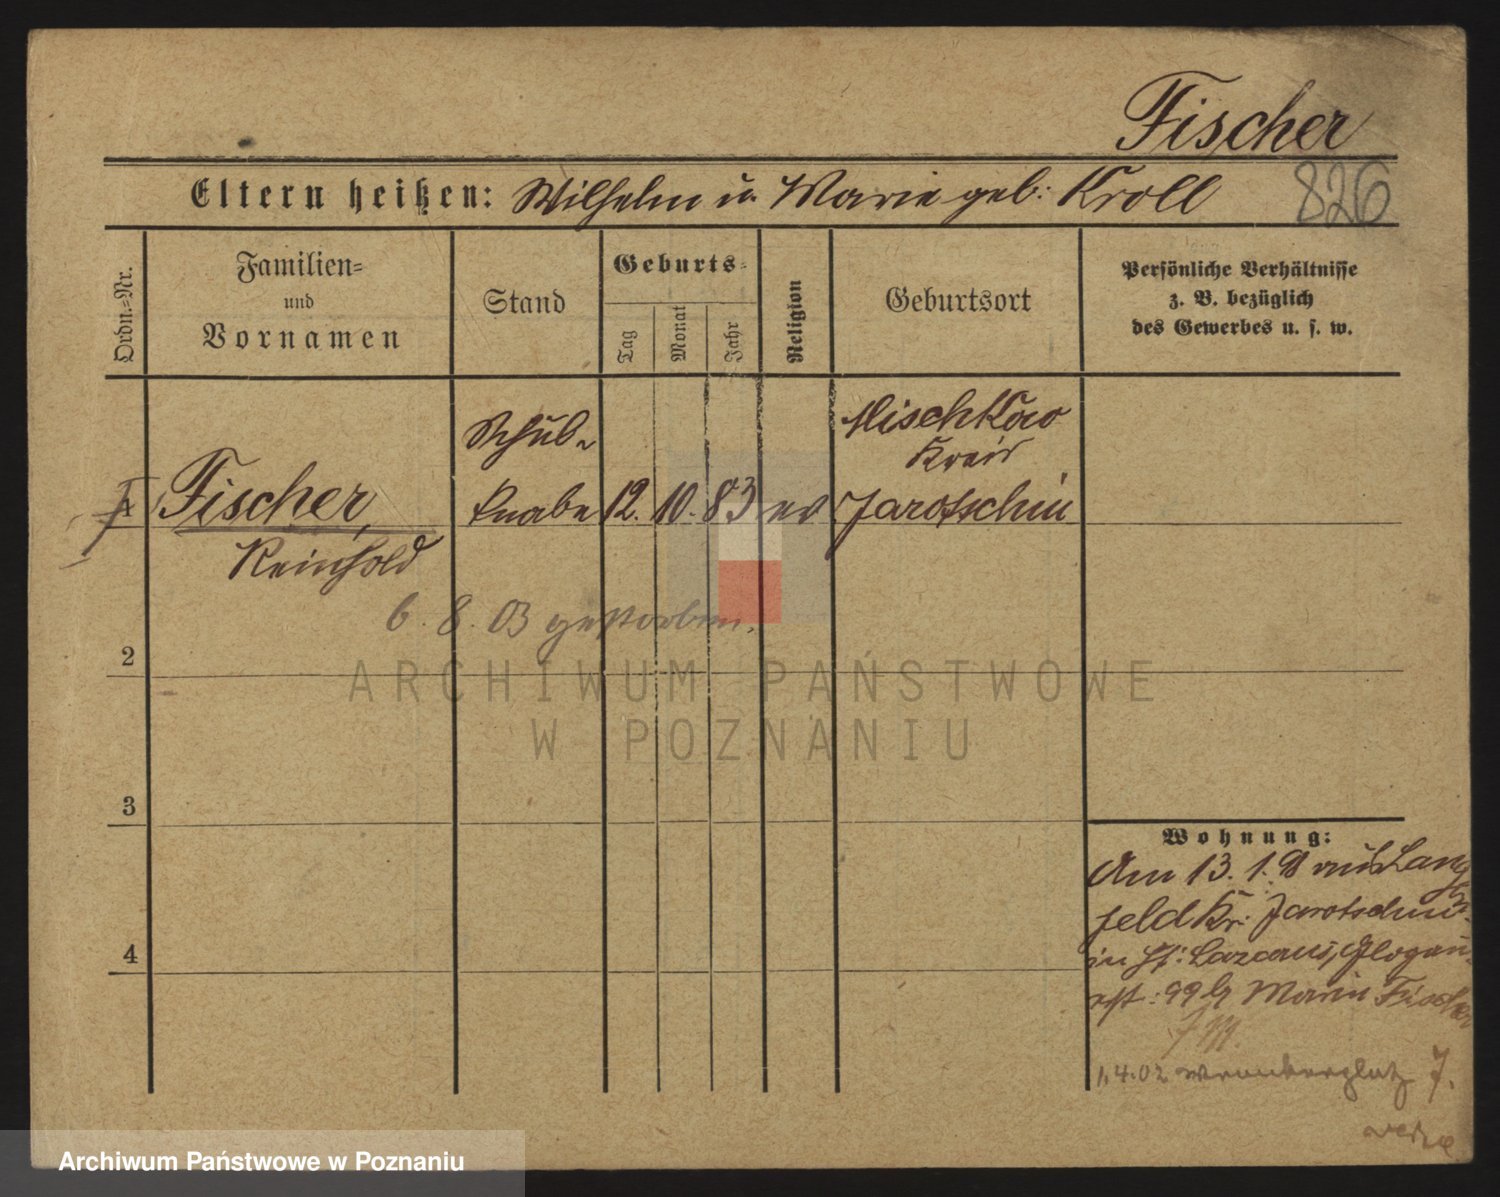 Fischer
Eltern heißen: Wilhelm u. Marie geb: Kroll 826
Ordn.-Nr.
Familien-
und
Vornamen
Stand
Geburts-
Tag
Monat
Jahr
Religion
Geburtsort
Persönliche Verhältnisse
z. B. bezüglich
des Gewerbes u. s. w.
Schul-
knabe
Mischkow
Kreis
Jarotschin
1 Fischer, 12. 10. 83 ev
Reinhold
6. 8. 03 gestorben.
2
3
4
Wohnung:
Am 13. 1. 98 aus Lang
feld Kr: Jarotschin
in St: Lazarus, Glogau-
rst: 99 b Marie Fischer
1.4.02 7.
ARCHIWUM PAŃSTWOWE
W POZNANIU
Archiwum Państwowe w Poznaniu